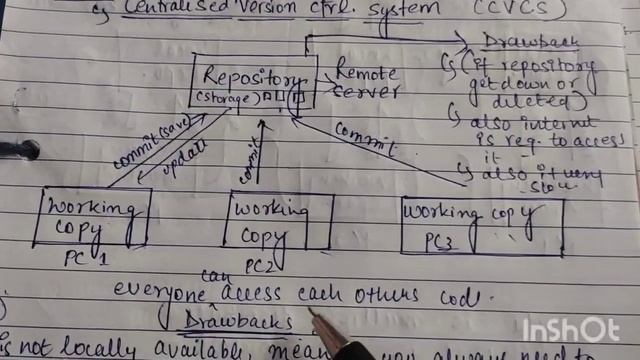 ↳ Centralised Version ctrl. system (CVCS)
Drawback
Repository
(storage)
Remote
server
↳ (if repository
get down or
dileted)
↳ also internet
is req. to access
it
↳ also it very
slow
commit (save)
update
commit
commit
working
copy
PC 1
working
copy
PC2
working copy
PC3
can
everyone access each others cod.
Drawbacks
is not locally available, mean you always need to
InShot